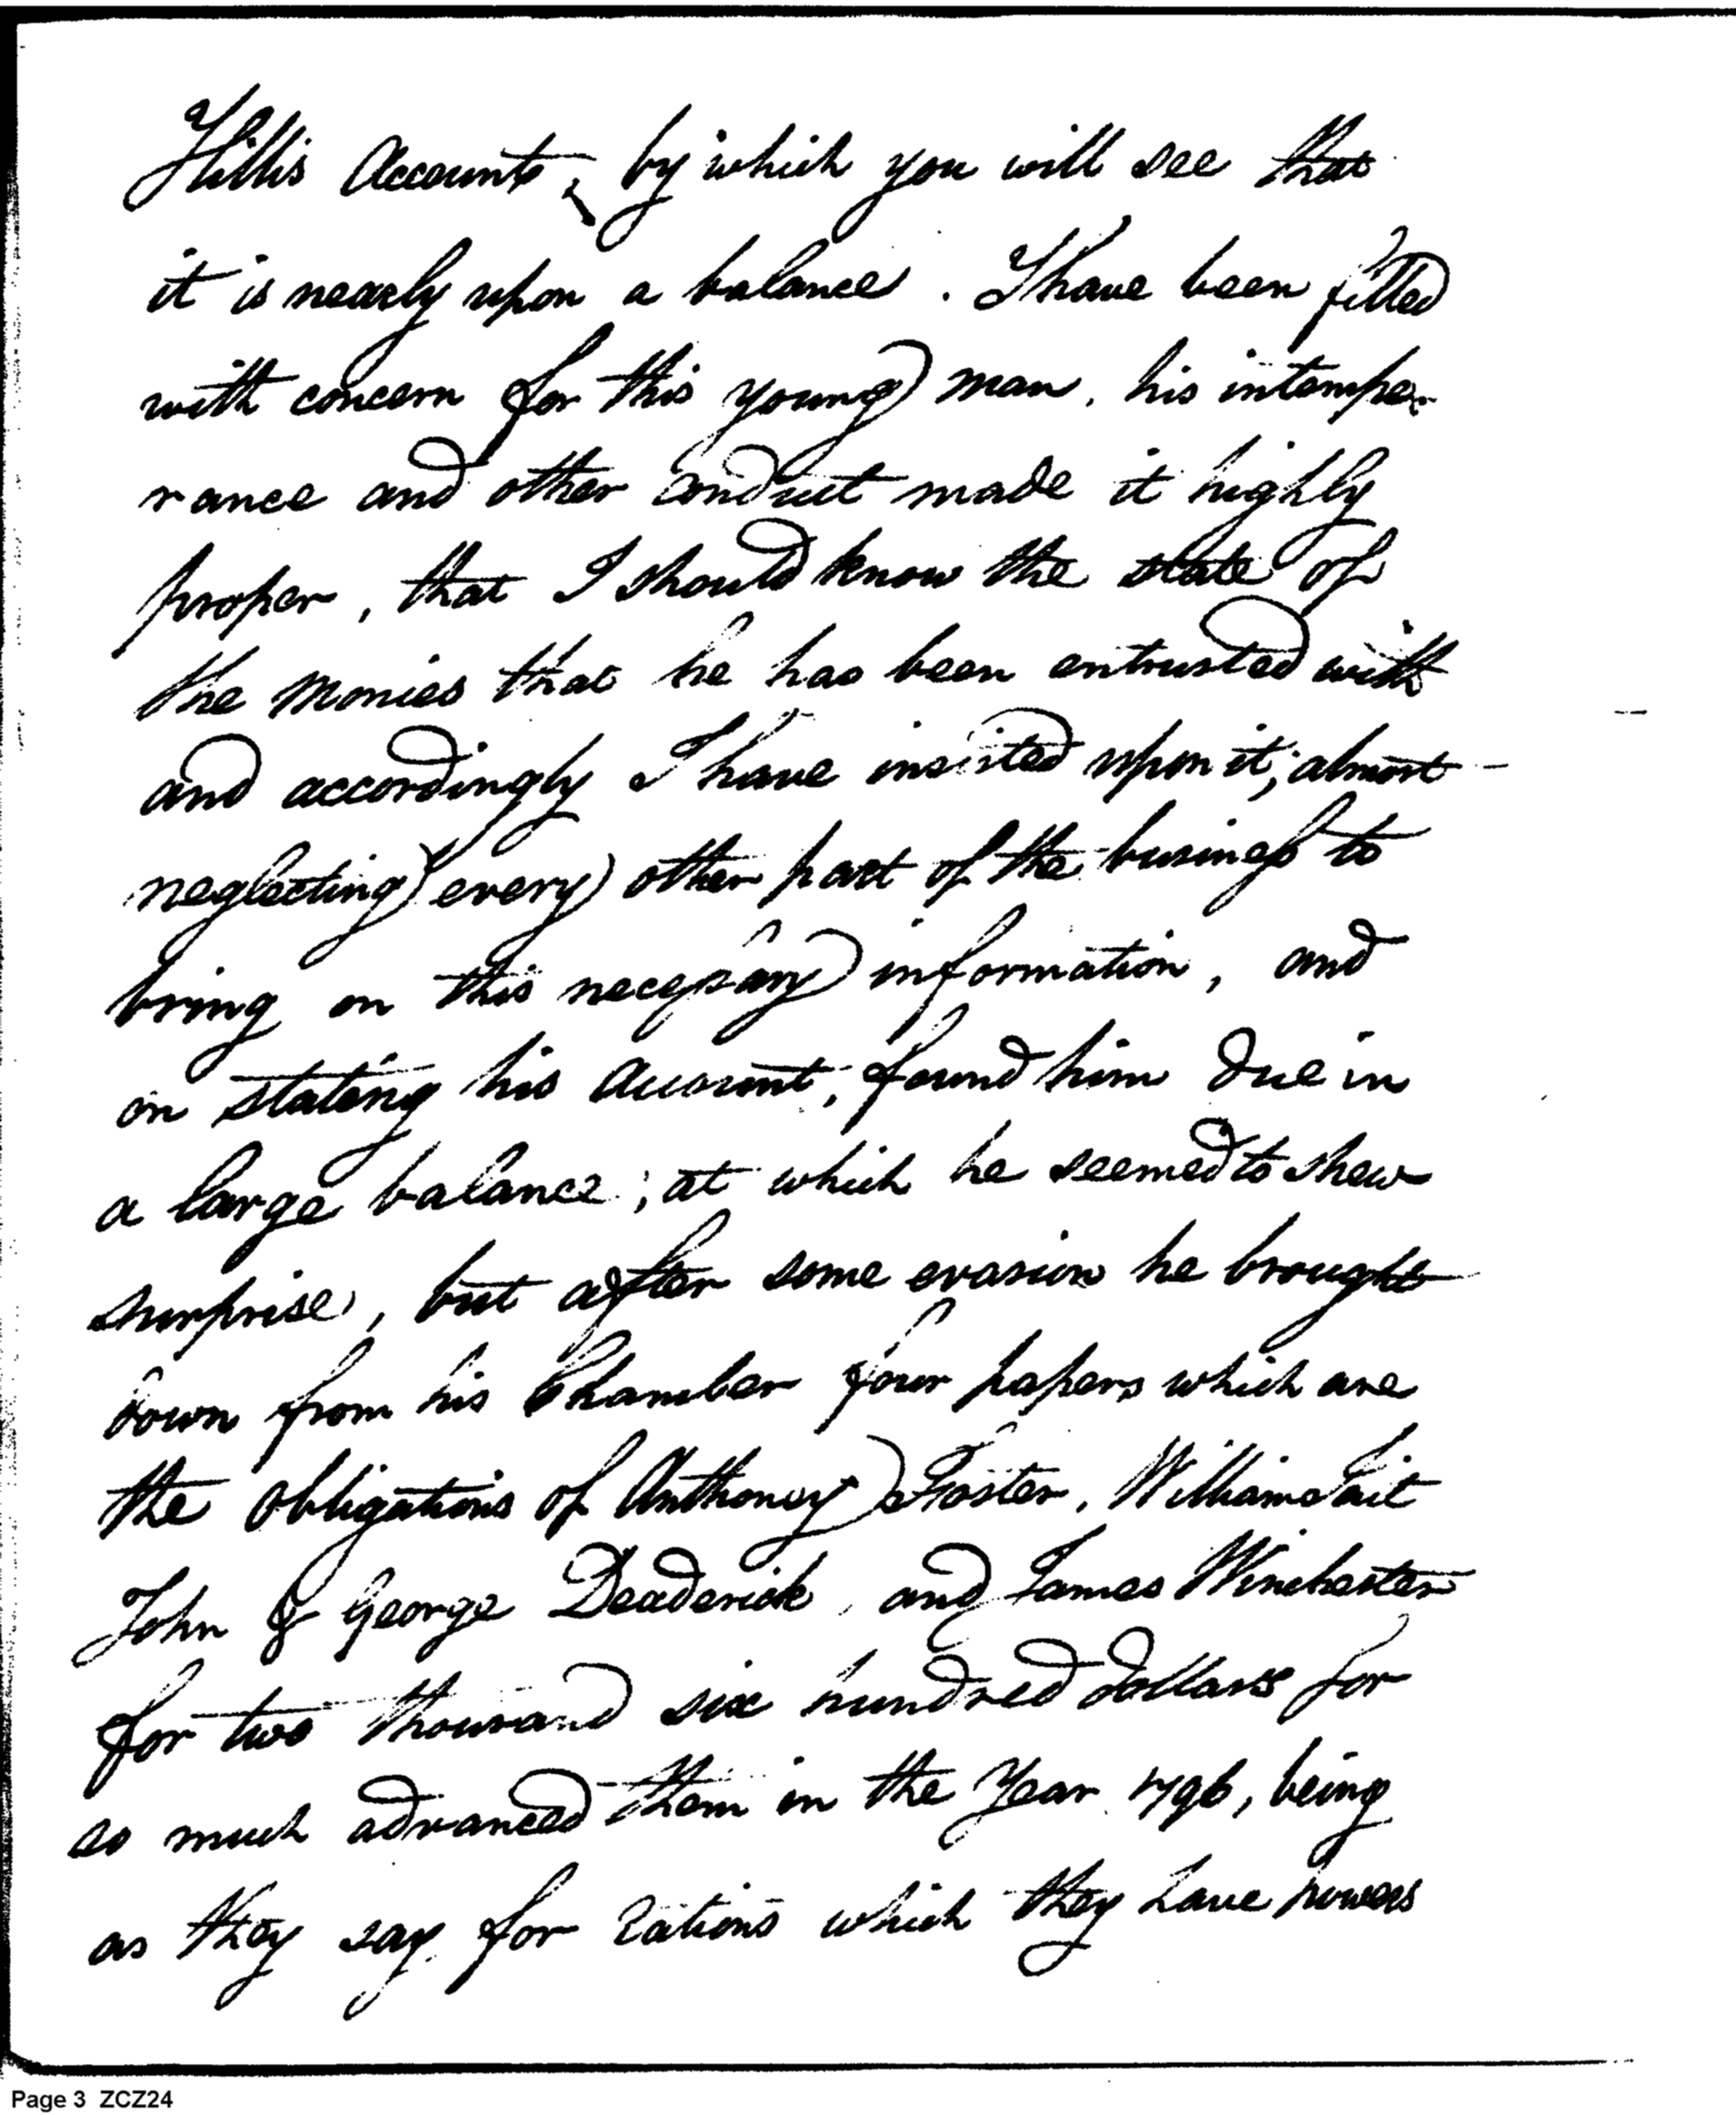 Hillis Accounts, by which you will see that
it is nearly upon a balance. I have been filled
with concern for this young man, his intempe-
rance and other conduct made it highly
proper, that I should know the state of
the monies that he has been entrusted with
and accordingly I have insisted upon it; almost
neglecting every other part of the business to
bring on this necessary information, and
on stating his account, found him due in
a large balance; at which he seemed to shew
surprise, but after some evasion he brought
down from his Chamber four papers which are
the obligations of Anthoney Foster, William Tait
John & George Deaderick, and James Winchester
for two thousand six hundred dollars for
so much advanced them in the Year 1796, being
as they say for rations which they have
Page 3 ZCZ24